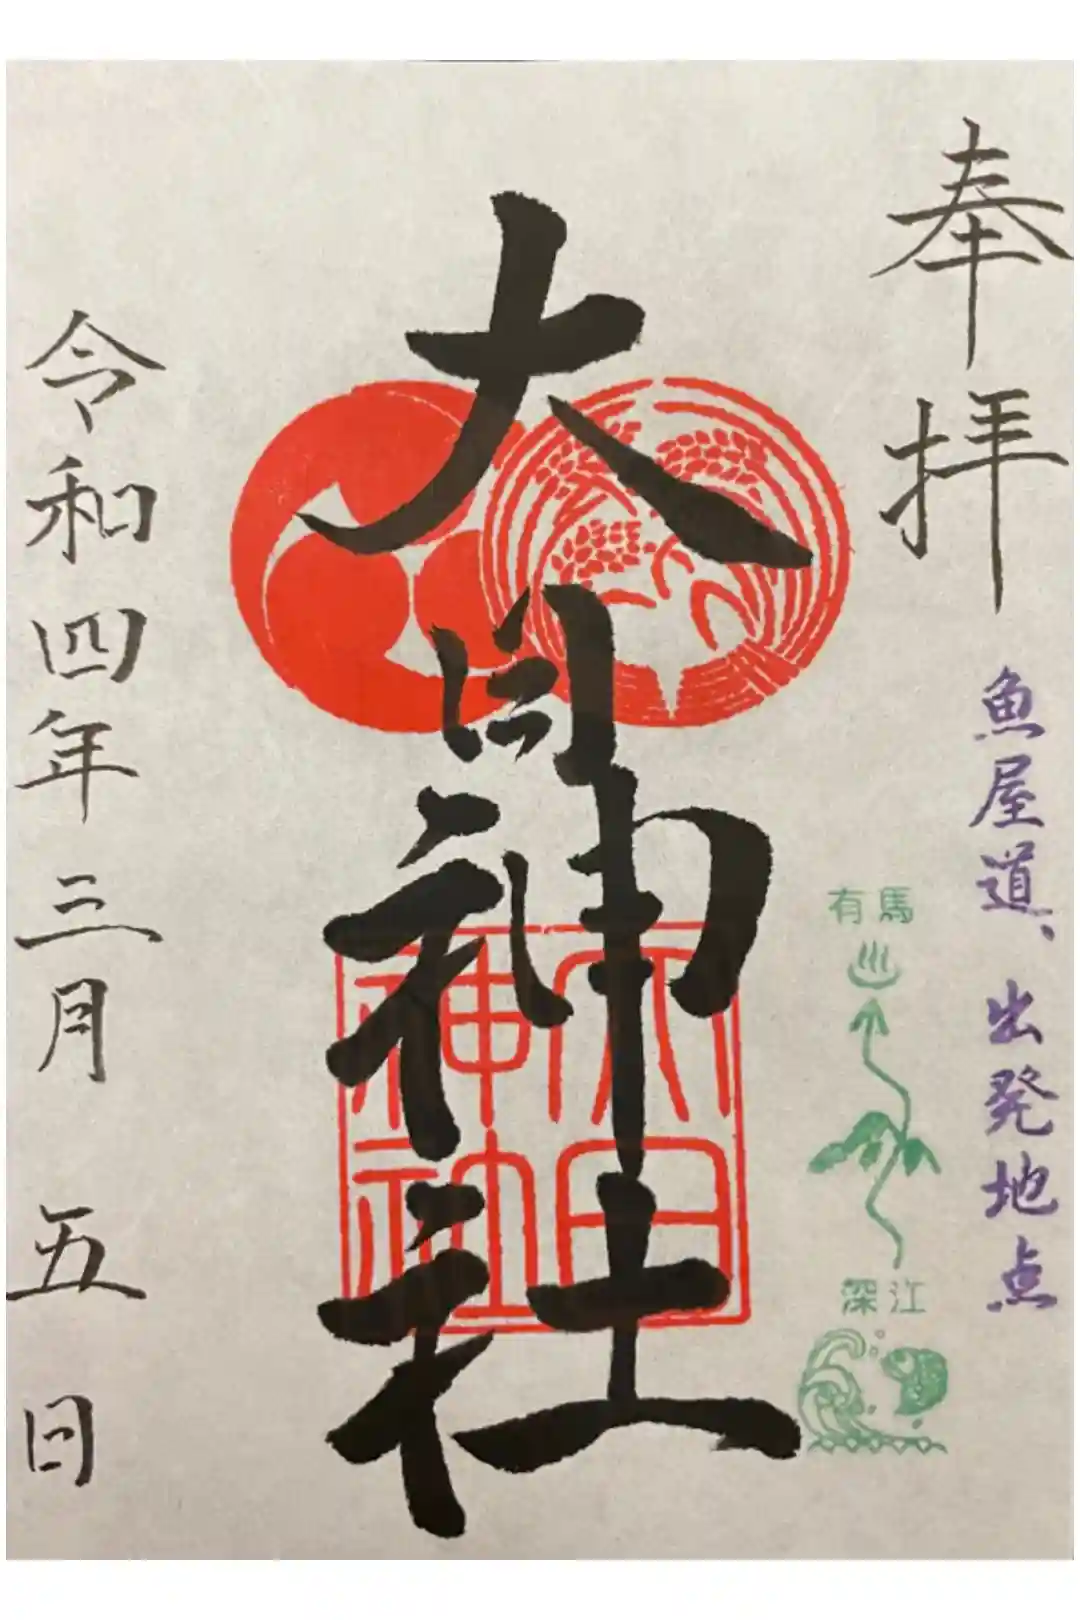 奉拝
魚屋道、出発地点
有馬
深江
大日神社
大日
神社
令和四年三月五日